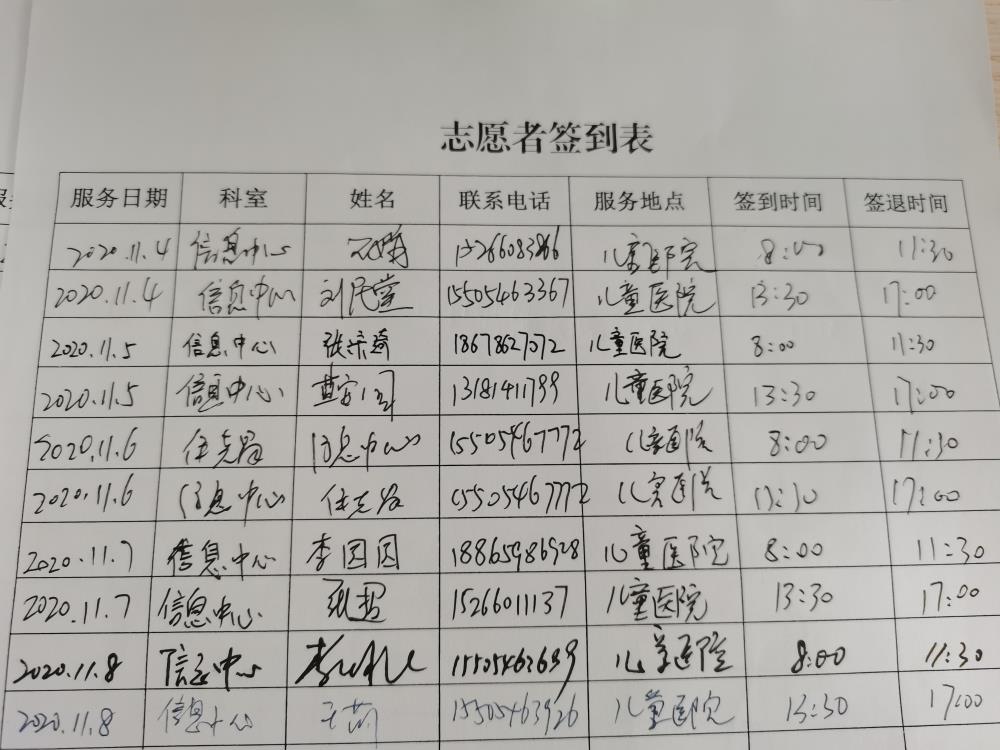 志愿者签到表
服务日期 科室 姓名 联系电话 服务地点 签到时间 签退时间
2020.11.4 信息中心 13266083866 儿童医院 8:00 11:30
2020.11.4 信息中心 刘民堂 15505463367 儿童医院 13:30 17:00
2020.11.5 信息中心 18678627072 儿童医院 8:00 11:30
2020.11.5 信息中心 13181411799 儿童医院 13:30 17:00
2020.11.6 信息中心 15505467772 儿童医院 8:00 11:30
2020.11.6 信息中心 15505467772 儿童医院 13:30 17:00
2020.11.7 信息中心 李囡囡 18865986928 儿童医院 8:00 11:30
2020.11.7 信息中心 15266011137 儿童医院 13:30 17:00
2020.11.8 信息中心 儿童医院 8:00 11:30
2020.11.8 信息中心 王莉 15505463926 儿童医院 13:30 17:00